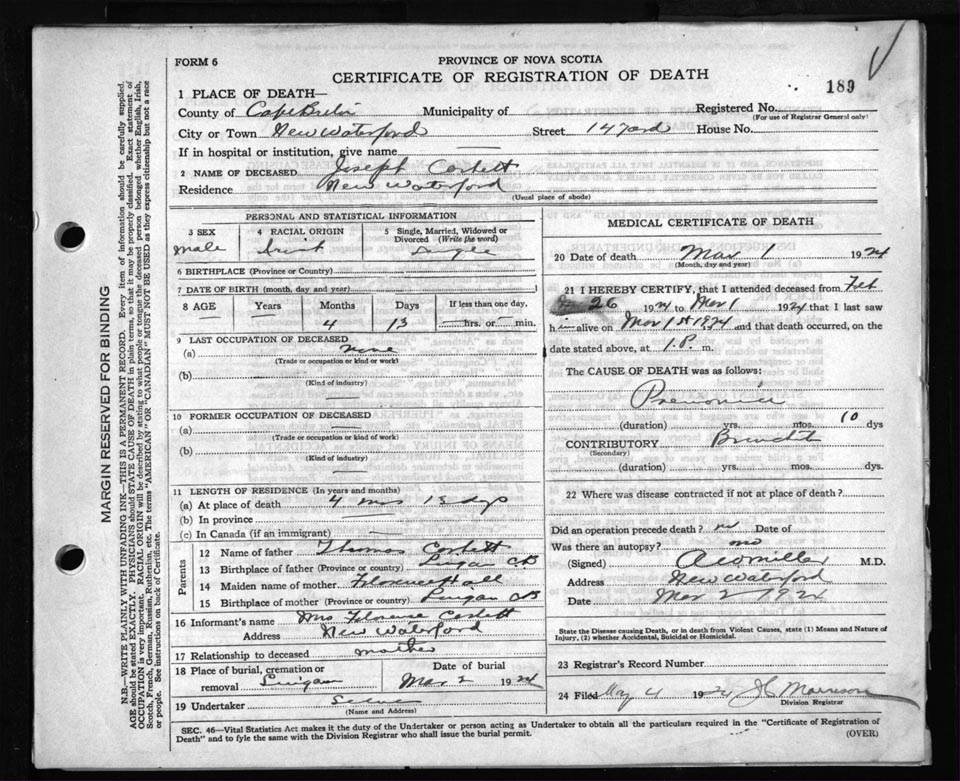 FORM 6
PROVINCE OF NOVA SCOTIA
CERTIFICATE OF REGISTRATION OF DEATH
189
1 PLACE OF DEATH—
County of Cape Breton Municipality of Registered No.
(For use of Registrar General only)
City or Town New Waterford Street 14 Yard House No.
If in hospital or institution, give name
2 NAME OF DECEASED Joseph Corbett
Residence New Waterford
(Usual place of abode)
PERSONAL AND STATISTICAL INFORMATION
3 SEX 4 RACIAL ORIGIN 5 Single, Married, Widowed or Divorced (Write the word)
male Irish Single
6 BIRTHPLACE (Province or Country)
7 DATE OF BIRTH (month, day and year)
8 AGE Years Months Days If less than one day,
4 13 hrs. or min.
9 LAST OCCUPATION OF DECEASED
(a) none
(Trade or occupation or kind of work)
(b)
(Kind of industry)
10 FORMER OCCUPATION OF DECEASED
(a)
(Trade or occupation or kind of work)
(b)
(Kind of industry)
11 LENGTH OF RESIDENCE (In years and months)
(a) At place of death 4 mos 13 dys
(b) In province
(c) In Canada (if an immigrant)
Parents
12 Name of father Thomas Corbett
13 Birthplace of father (Province or country) Lingan CB
14 Maiden name of mother Florence Hall
15 Birthplace of mother (Province or country) Lingan CB
16 Informant's name Mrs Florence Corbett
Address New Waterford
17 Relationship to deceased mother
18 Place of burial, cremation or removal Lingan Date of burial Mar 2 1924
19 Undertaker
(Name and Address)
MEDICAL CERTIFICATE OF DEATH
20 Date of death Mar 1 1924
(Month, day and year)
21 I HEREBY CERTIFY, that I attended deceased from Feb
26 1924 to Mar 1 1924 that I last saw
him alive on Mar 1st 1924 and that death occurred, on the
date stated above, at 1.P. m.
The CAUSE OF DEATH was as follows:
Pneumonia
(duration) yrs. mos. 10 dys
CONTRIBUTORY
(Secondary)
(duration) yrs. mos. dys.
22 Where was disease contracted if not at place of death?
Did an operation precede death? no Date of
Was there an autopsy? no
(Signed) Miller M.D.
Address New Waterford
Date Mar 2 1924
State the Disease causing Death, or in death from Violent Causes, state (1) Means and Nature of
Injury, (2) whether Accidental, Suicidal or Homicidal.
23 Registrar's Record Number
24 Filed May 4 1924 J C Morrison
Division Registrar
SEC. 46—Vital Statistics Act makes it the duty of the Undertaker or person acting as Undertaker to obtain all the particulars required in the "Certificate of Registration of
Death" and to fyle the same with the Division Registrar who shall issue the burial permit.
(OVER)
MARGIN RESERVED FOR BINDING
N.B.—WRITE PLAINLY WITH UNFADING INK—THIS IS A PERMANENT RECORD. Every item of information should be carefully supplied.
AGE should be stated EXACTLY. PHYSICIANS should STATE CAUSE OF DEATH in plain terms, so that it may be properly classified. Exact statement of
OCCUPATION is very important. RACIAL ORIGIN will be described by stating to what people or tongue the deceased person belonged whether English, Irish,
Scotch, French, German, Russian, Ruthenian, etc. The terms "AMERICAN" OR "CANADIAN" MUST NOT BE USED as they express citizenship but not a race
or people. See instructions on back of Certificate.